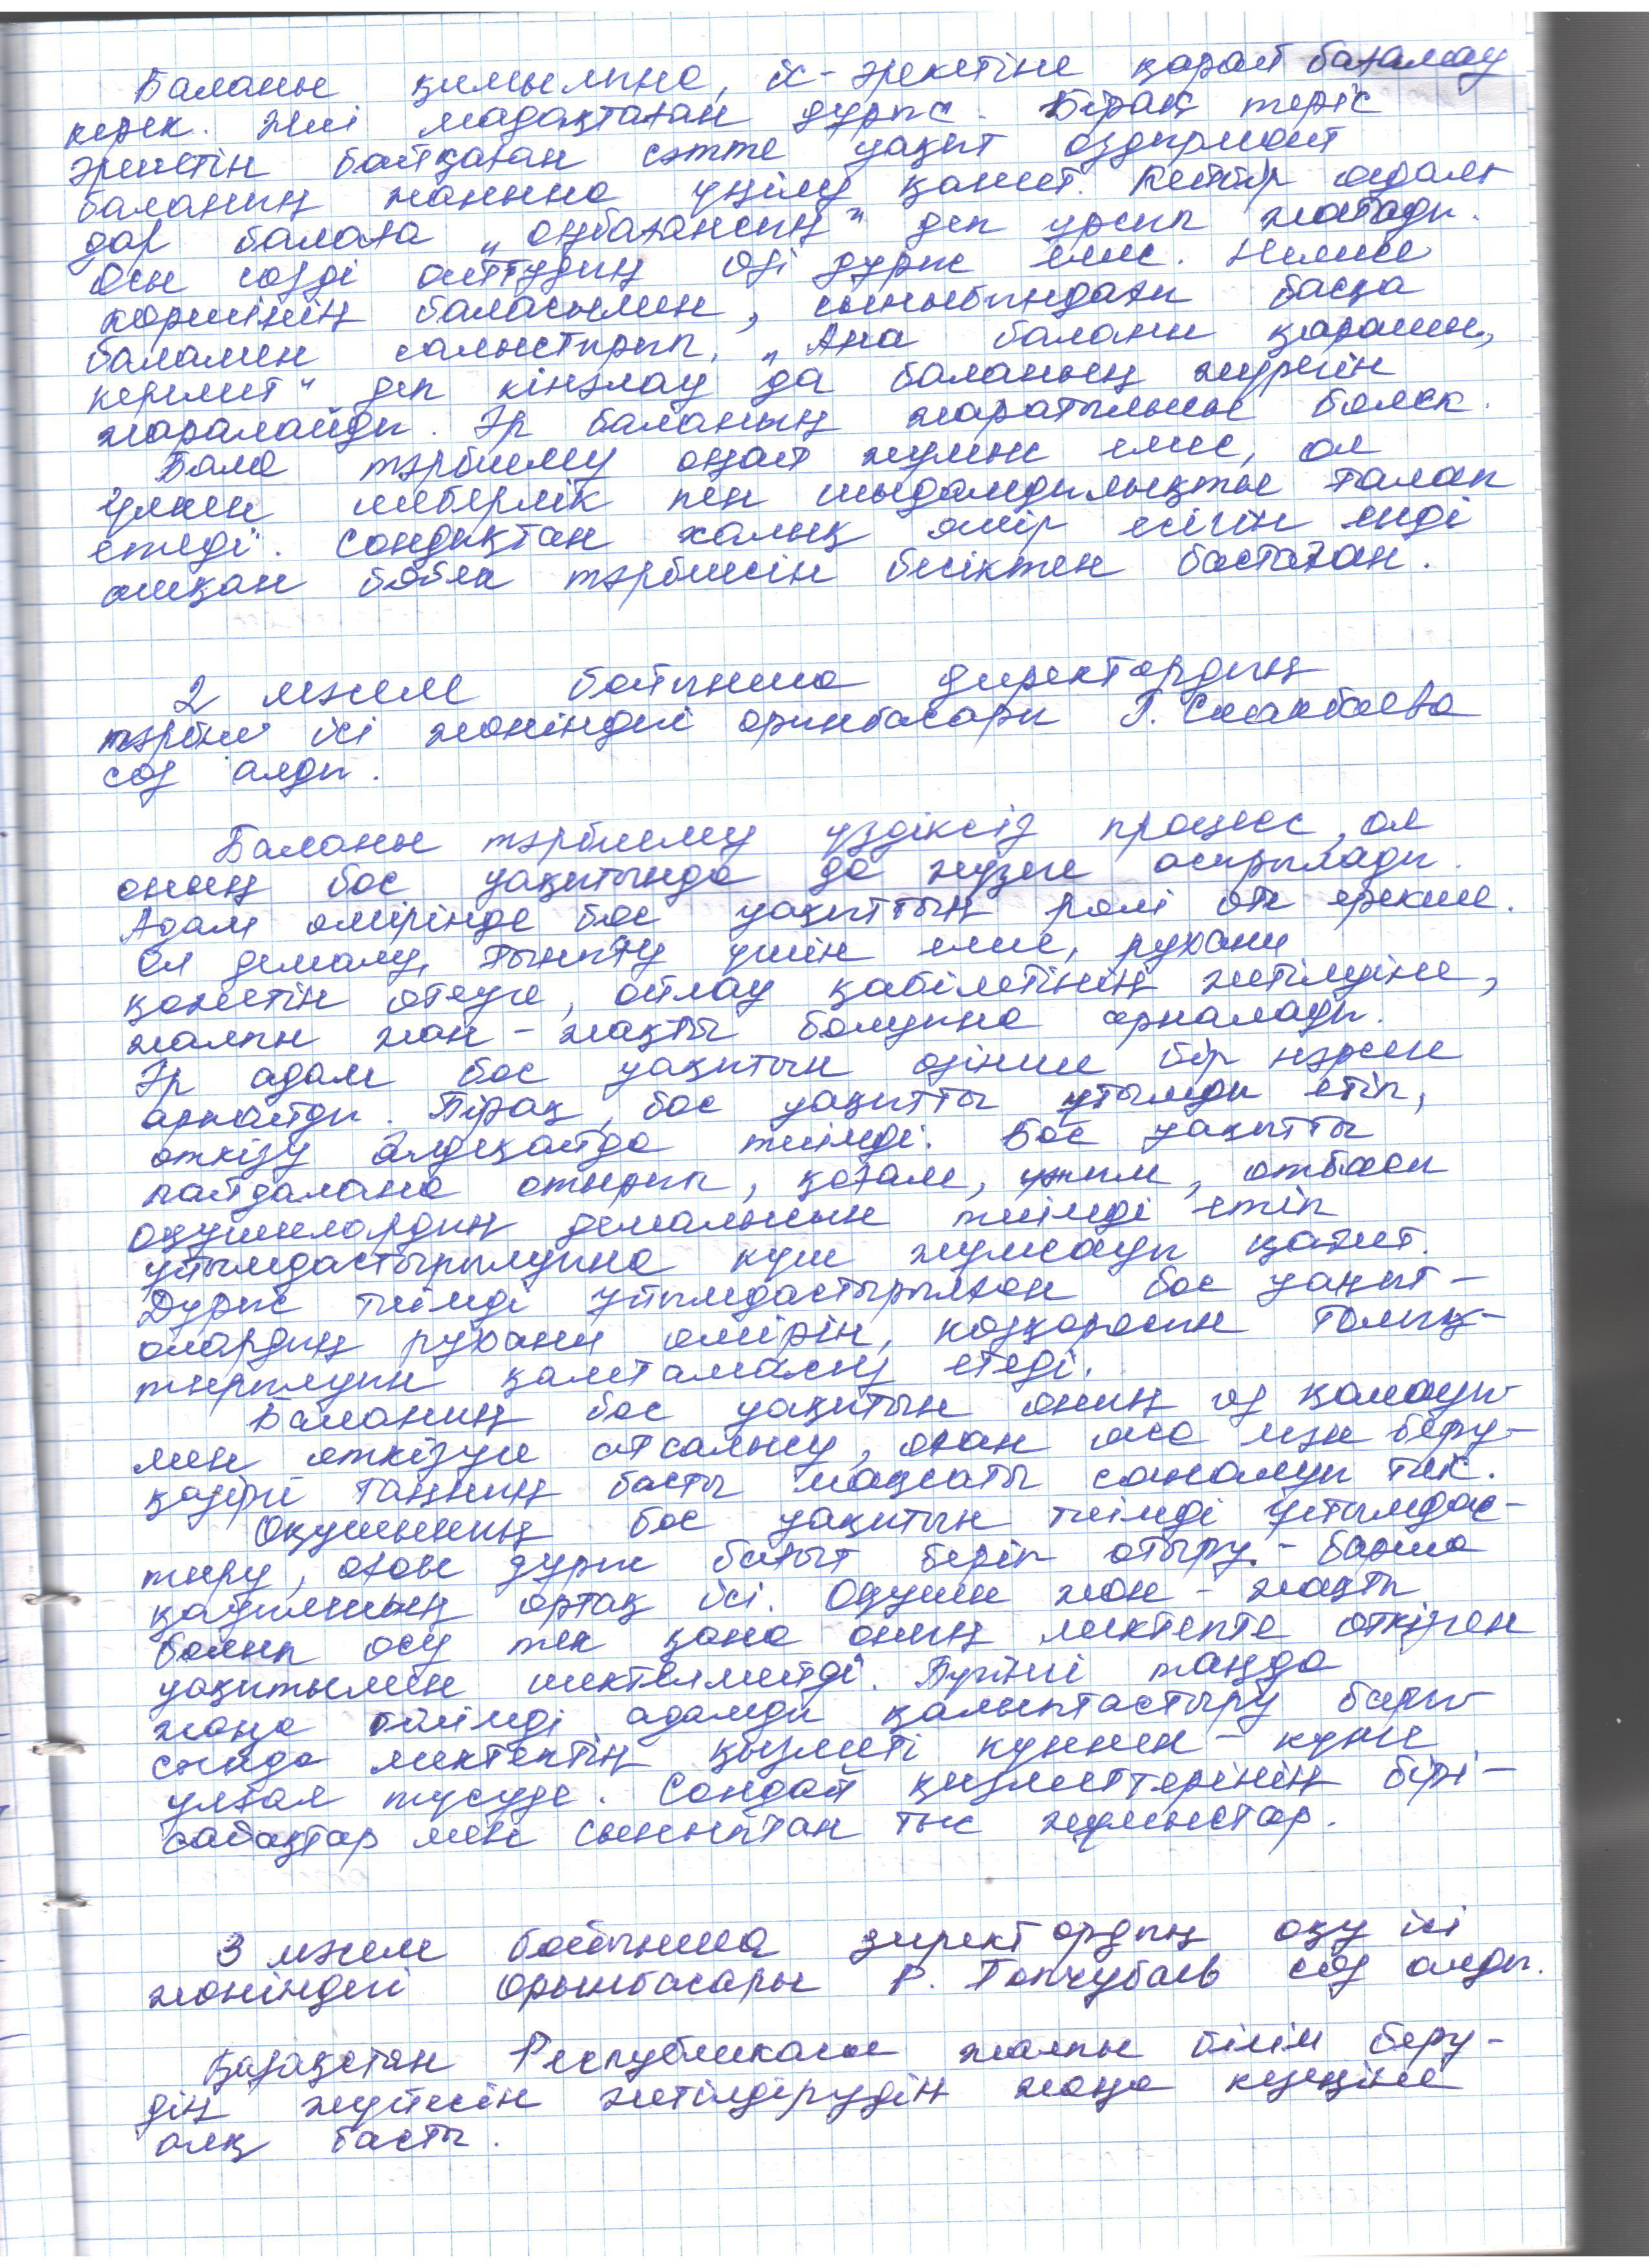 Баланы қимылына, іс-әрекетіне қарай бағалау
керек. Жиі мадақтаған дұрыс. Бірақ теріс
әрекетін байқаған сәтте уақыт оздырмай
баланың жанына үңілу қажет. Кейбір адам-
дар балаға „оңбағансың" деп ұрсып жатады.
Осы сөзді айтудың өзі дұрыс емес. Немесе
көршінің баласымен, сыныбындағы басқа
баламен салыстырып, „Ана баланы қарашы,
керемет" деп кінәлау да баланың жүрегін
жаралайды. Әр баланың жаратылысы бөлек.
Бала тәрбиелеу оңай жұмыс емес, ол
үлкен шеберлік пен шыдамдылықты талап
етеді. Сондықтан халық өмір есігін енді
ашқан бөбек тәрбиесін бесіктен бастаған.
2 мәселе бойынша директордың
тәрбие ісі жөніндегі орынбасары Г.
сөз алды.
Баланы тәрбиелеу үздіксіз процесс, ол
оның бос уақытында да жүзеге асырылады.
Адам өмірінде бос уақыттың рөлі өте ерекше.
Ол демалу, тынығу үшін емес, рухани
қажетін өтеуге, ойлау қабілетінің жетілуіне,
жалпы жан-жақты болуына арналады.
Әр адам бос уақытын өзінше бір нәрсеге
арнайды. Бірақ, бос уақытты ұтымды етіп,
өткізу әлдеқайда тиімді. Бос уақытты
пайдалана отырып, қоғам, ұжым, отбасы
оқушылардың демалысын тиімді етіп
ұйымдастырылуына күш жұмсауы қажет.
Дұрыс тиімді ұйымдастырылған бос уақыт-
олардың рухани өмірін, көзқарасын толық-
тырылуын қамтамасыз етеді.
Баланың бос уақытын оның өз қалауы
мен өткізуге атсалысу, оған аса мән беру-
қазіргі таңның басты мақсаты саналуы тиіс.
Оқушының бос уақытын тиімді ұйымдас-
тыру, оған дұрыс бағыт беріп отыру - барша
қауымның ортақ ісі. Оқушы жан-жақты
болып өсу тек қана оның мектепте өткізген
уақытымен шектелмейді. Бүгінгі таңда
жаңа білімді адамды қалыптастыру бары
сында мектептің қызметі күннен-күнге
ұлғая түсуде. Сондай қызметтерінің бірі-
сабақтар мен сыныптан тыс жұмыстар.
3 мәселе бойынша директордың оқу ісі
жөніндегі орынбасары Р. Топчубаев сөз алды.
Қазақстан Республикасы жалпы білім беру-
дің жүйесін жетілдірудің жаңа кезеңіне
аяқ басты.